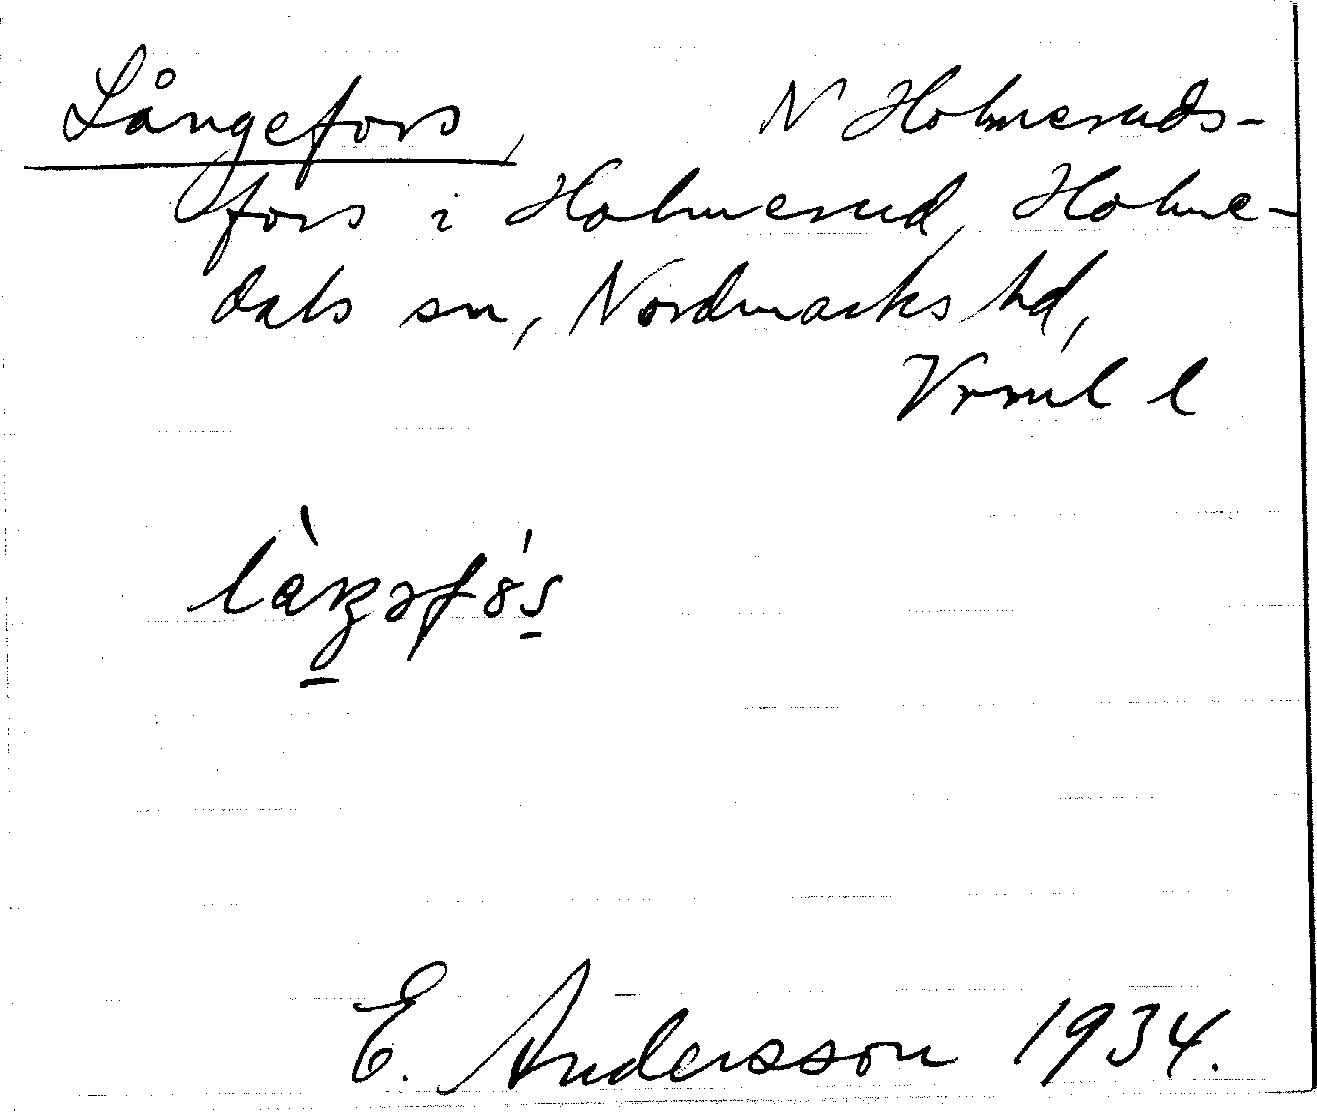 Långefors, N Holmeruds-
fors i Holmerud, Holme-
dals sn, Nordmarks hd,
Vrml l
E. Andersson 1934.